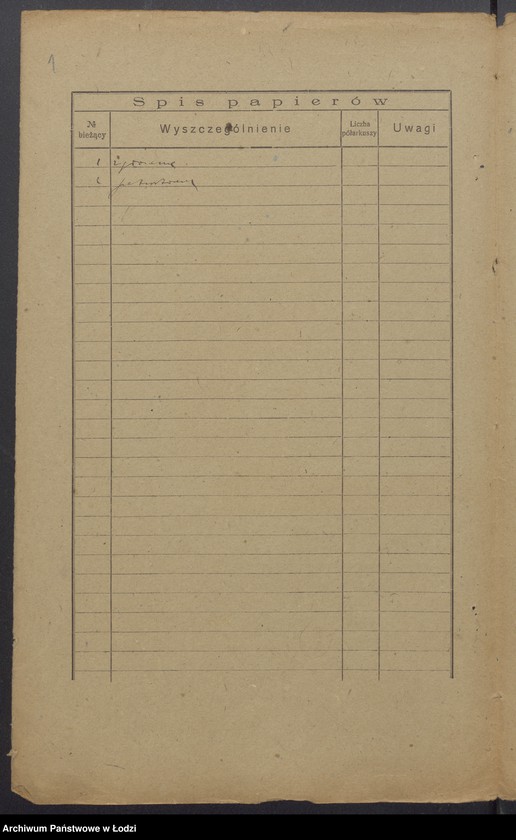 1
Spis papierów
№ bieżący
Wyszczególnienie
Liczba półarkuszy
Uwagi
1
Archiwum Państwowe w Łodzi